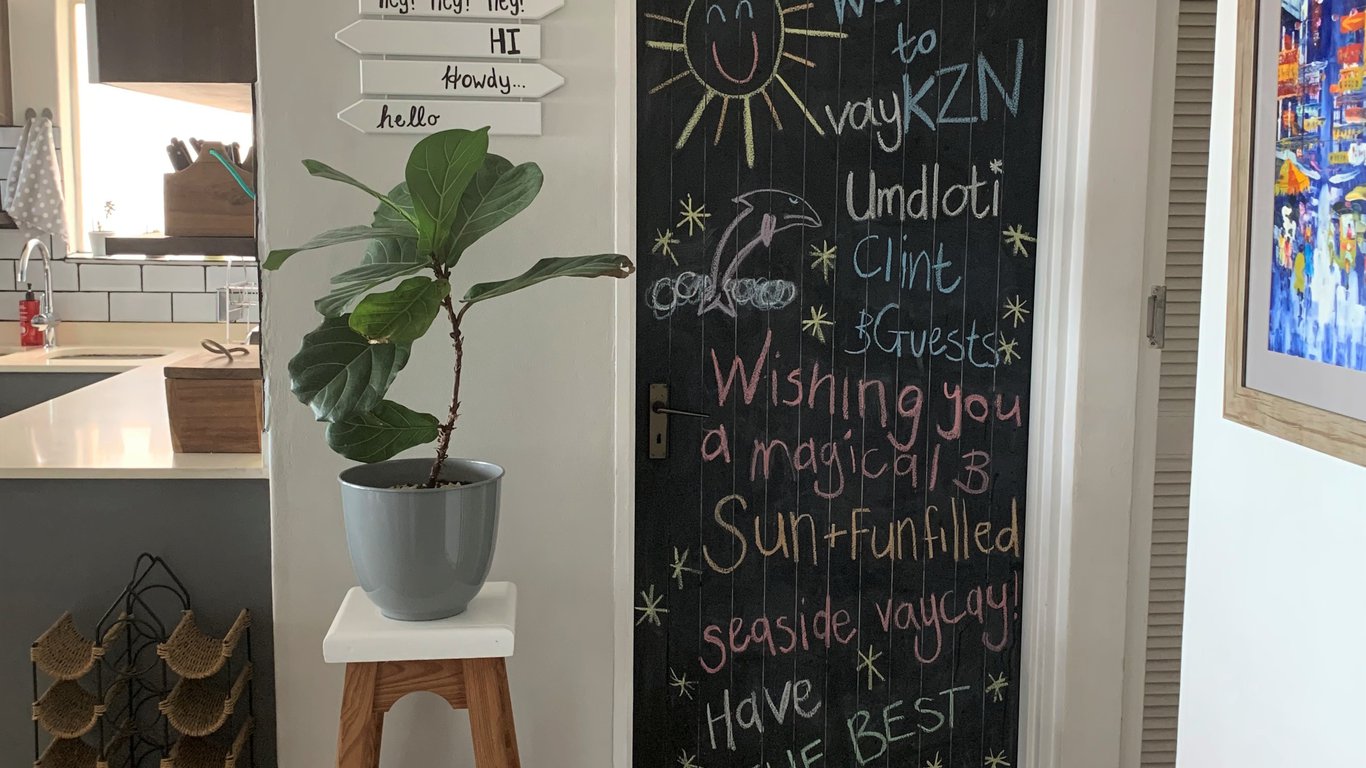 hey! hey! hey!
HI
Howdy...
hello
to
vayKZN
Umdloti
Clint
& Guests
Wishing you
a magical &
Sun + Funfilled
seaside vaycay!
Have
BEST